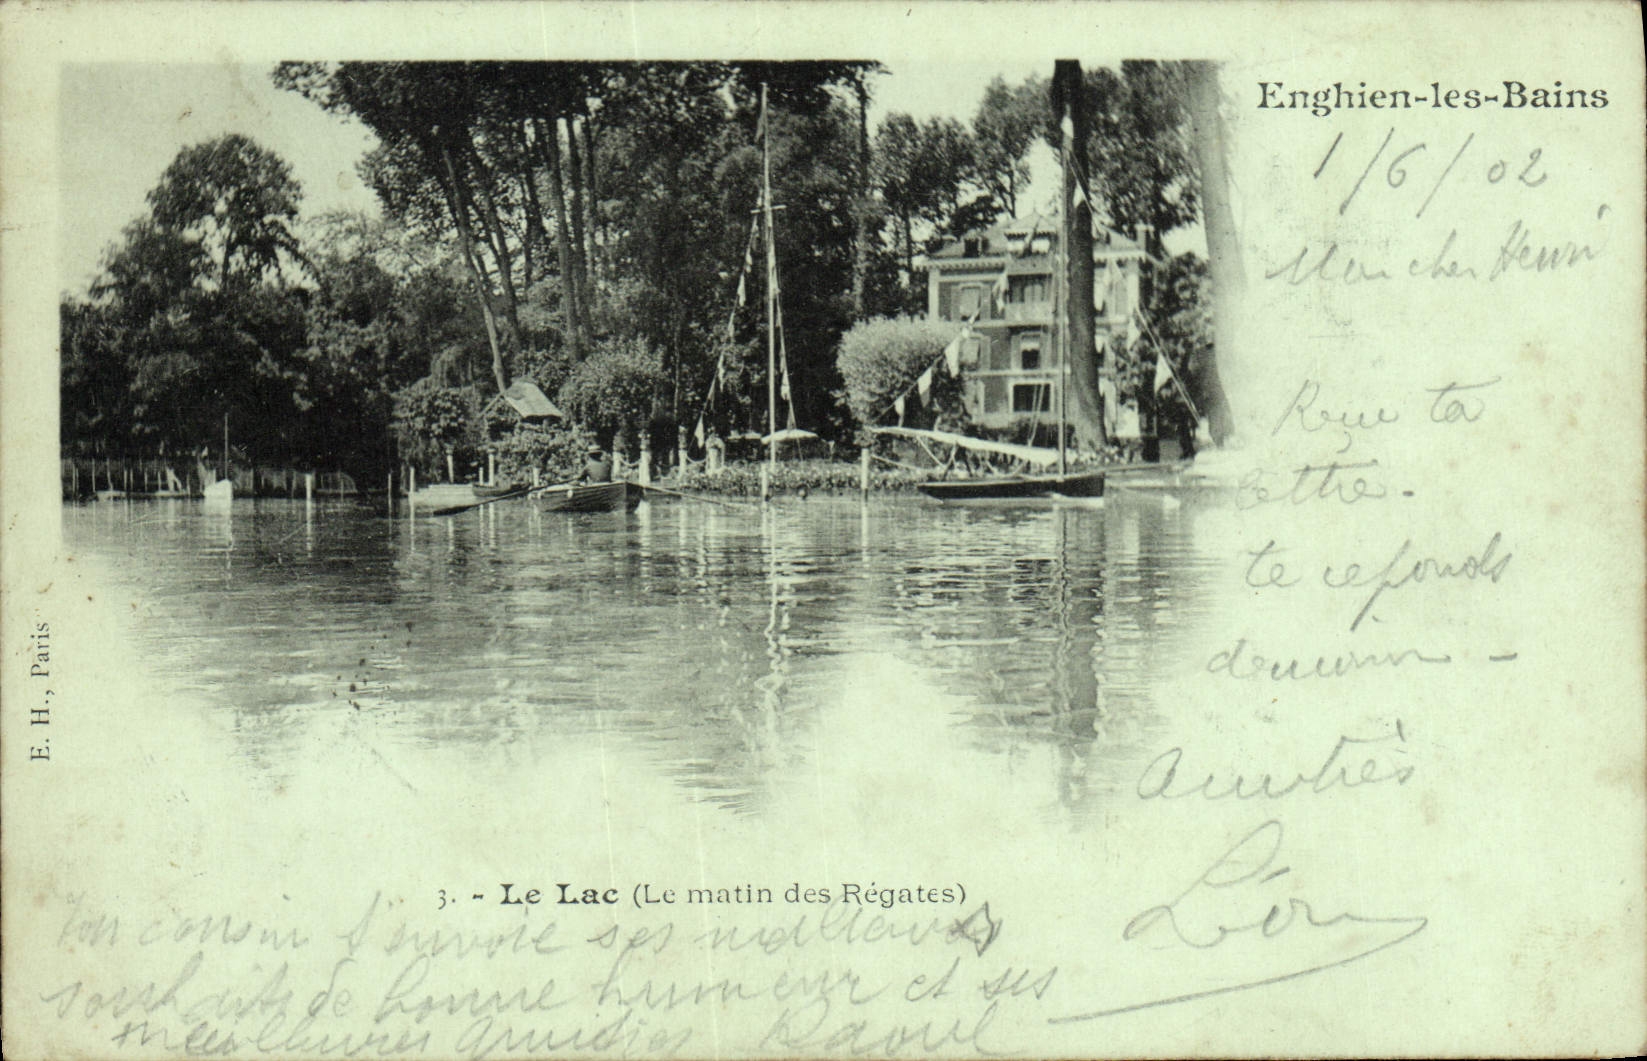 Enghien-les-Bains
1/6/02
Mon cher Henri
Reçu ta
lettre -
te reponds
demain -
Léon
3. - Le Lac (Le matin des Régates)
Ton cousin t'envoie ses meilleurs
souhaits de bonne humeur et ses
meilleures amitiés Raoul
E. H., Paris